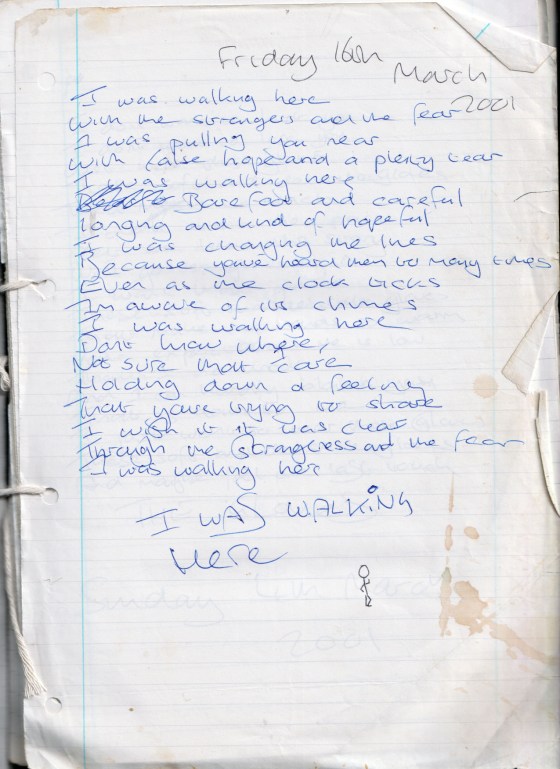 Friday 16th
March
2001
I was walking here
with the strangers and the fear
I was pulling you near
with false hope and a plenty tear
I was walking here
Barefoot and careful
longing and kind of hopeful
I was changing the lines
Because youve heard them to many times
Ever as the clock ticks
Im aware of its chimes
I was walking here
Dont know where,
Not sure that I care
Holding down a feeling
That youre trying to share
I wish it it was clear
Through the strangeness and the fear
I was walking here
I WAS WALKING
Here
Sunday 4th March
2001